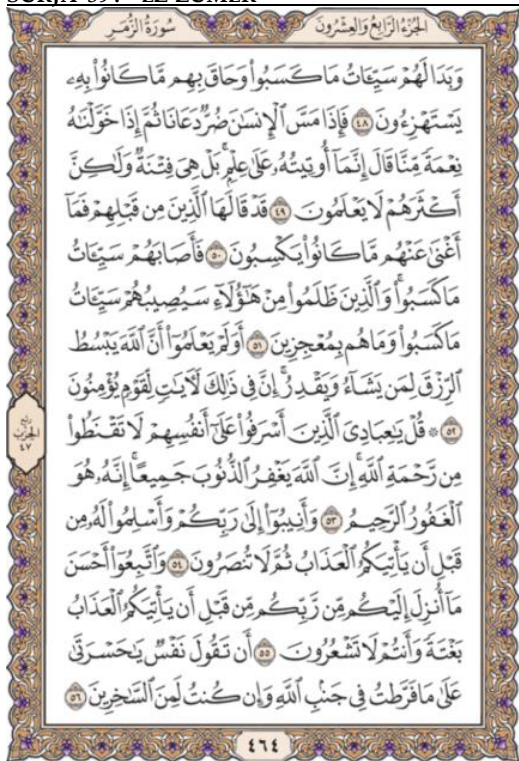 SURJA 39: EZ-ZUMER
الجُزْءُ الرَّابِعُ وَالعِشْرُونَ سُورَةُ الزُّمَرِ
وَبَدَا لَهُمْ سَيِّـَٔاتُ مَا كَسَبُوا۟ وَحَاقَ بِهِم مَّا كَانُوا۟ بِهِۦ
يَسْتَهْزِءُونَ ٤٨ فَإِذَا مَسَّ ٱلْإِنسَـٰنَ ضُرٌّ دَعَانَا ثُمَّ إِذَا خَوَّلْنَـٰهُ
نِعْمَةً مِّنَّا قَالَ إِنَّمَآ أُوتِيتُهُۥ عَلَىٰ عِلْمٍۭ ۚ بَلْ هِىَ فِتْنَةٌ وَلَـٰكِنَّ
أَكْثَرَهُمْ لَا يَعْلَمُونَ ٤٩ قَدْ قَالَهَا ٱلَّذِينَ مِن قَبْلِهِمْ فَمَآ
أَغْنَىٰ عَنْهُم مَّا كَانُوا۟ يَكْسِبُونَ ٥٠ فَأَصَابَهُمْ سَيِّـَٔاتُ
مَا كَسَبُوا۟ ۚ وَٱلَّذِينَ ظَلَمُوا۟ مِنْ هَـٰٓؤُلَآءِ سَيُصِيبُهُمْ سَيِّـَٔاتُ
مَا كَسَبُوا۟ وَمَا هُم بِمُعْجِزِينَ ٥١ أَوَلَمْ يَعْلَمُوٓا۟ أَنَّ ٱللَّهَ يَبْسُطُ
ٱلرِّزْقَ لِمَن يَشَآءُ وَيَقْدِرُ ۚ إِنَّ فِى ذَٰلِكَ لَـَٔايَـٰتٍ لِّقَوْمٍ يُؤْمِنُونَ
٥٢ ۞ قُلْ يَـٰعِبَادِىَ ٱلَّذِينَ أَسْرَفُوا۟ عَلَىٰٓ أَنفُسِهِمْ لَا تَقْنَطُوا۟
مِن رَّحْمَةِ ٱللَّهِ ۚ إِنَّ ٱللَّهَ يَغْفِرُ ٱلذُّنُوبَ جَمِيعًا ۚ إِنَّهُۥ هُوَ
ٱلْغَفُورُ ٱلرَّحِيمُ ٥٣ وَأَنِيبُوٓا۟ إِلَىٰ رَبِّكُمْ وَأَسْلِمُوا۟ لَهُۥ مِن
قَبْلِ أَن يَأْتِيَكُمُ ٱلْعَذَابُ ثُمَّ لَا تُنصَرُونَ ٥٤ وَٱتَّبِعُوٓا۟ أَحْسَنَ
مَآ أُنزِلَ إِلَيْكُم مِّن رَّبِّكُم مِّن قَبْلِ أَن يَأْتِيَكُمُ ٱلْعَذَابُ
بَغْتَةً وَأَنتُمْ لَا تَشْعُرُونَ ٥٥ أَن تَقُولَ نَفْسٌ يَـٰحَسْرَتَىٰ
عَلَىٰ مَا فَرَّطتُ فِى جَنۢبِ ٱللَّهِ وَإِن كُنتُ لَمِنَ ٱلسَّـٰخِرِينَ ٥٦
ربع
الحزب
٤٧
٤٦٤